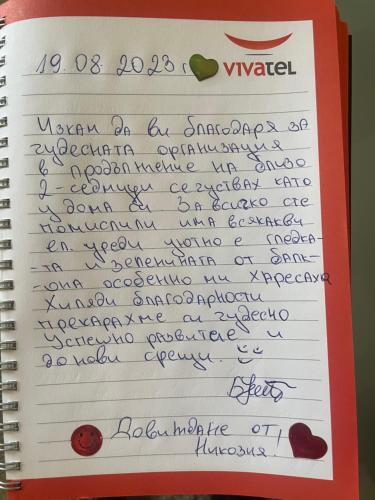 19.08.2023 г
vivatel
Искам да ви благодаря за
чудесната организация
в продължение на близо
2-седмици се густвах като
у дома си За всичко сте
помислили има всякакви
ел. уреди уютно е гледка-
-та и зеленината от балк-
-она особенно ми харесаха
Хиляди благодарности
прекарахме си чудесно
Успешно развитие и
до нови срещи.
Довиждане от
Никозия!